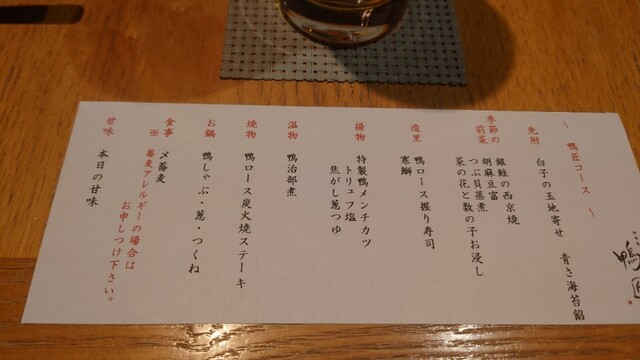 鴨匠
～ 鴨匠コース ～
先附 白子の玉地寄せ 青さ海苔餡
季節の前菜 銀鮭の西京焼
胡麻豆富
つぶ貝蒸煮
菜の花と数の子お浸し
造里 鴨ロース握り寿司
寒鰤
揚物 特製鴨メンチカツ
トリュフ塩
焦がし葱つゆ
温物 鴨治部煮
焼物 鴨ロース炭火焼ステーキ
お鍋 鴨しゃぶ・葱・つくね
食事 〆蕎麦
※ 蕎麦アレルギーの場合は
お申しつけ下さい。
甘味 本日の甘味